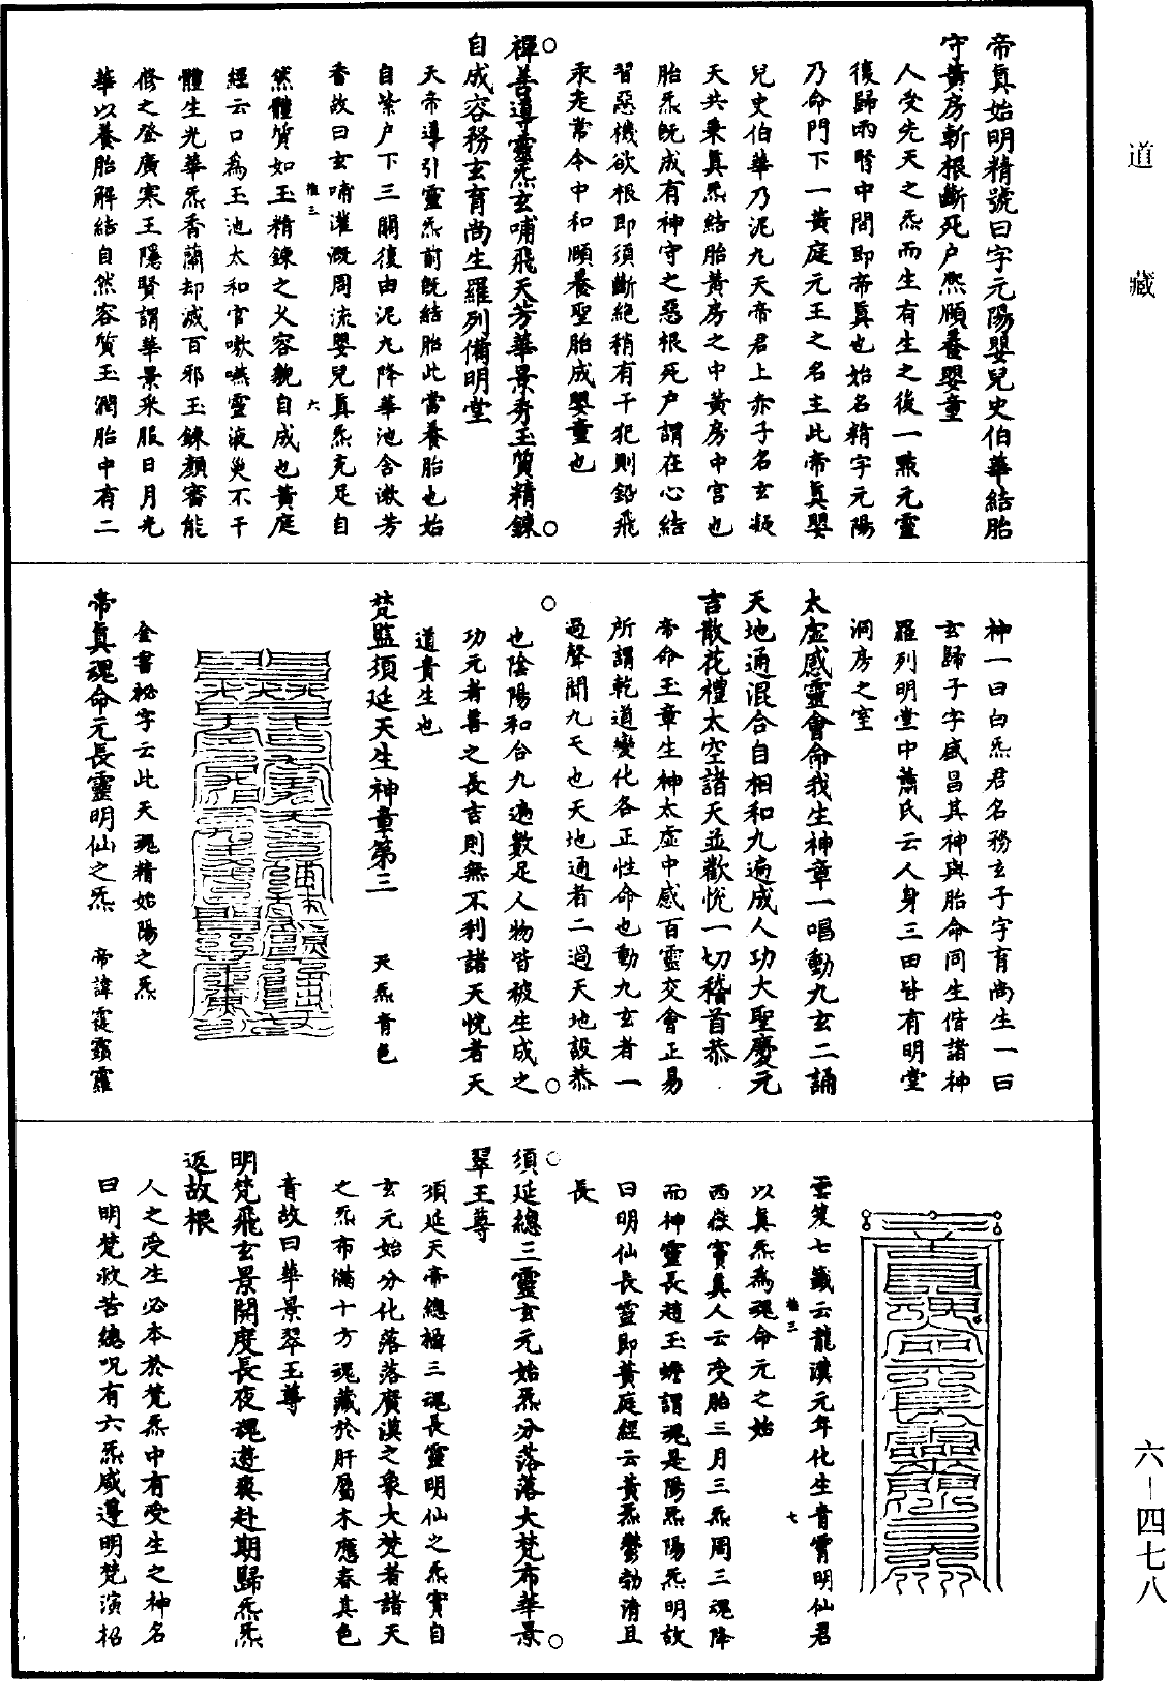 道藏
帝真始明精號曰字元陽嬰兒史伯華結胎
守黃房斬根斷死戶熙頤養嬰童
人受先天之炁而生有生之後一點元靈
復歸兩腎中間即帝真也始名精字元陽
乃命門下一黃庭元王之名主此帝真嬰
兒史伯華乃泥丸天帝君上赤子名玄凝
天共乘真炁結胎黃房之中黃房中宮也
胎炁既成有神守之惡根死戶謂在心結
習惡機欲根即須斷絕稍有干犯則鉛飛
汞走常令中和頤養聖胎成嬰童也
禪善導靈炁玄哺飛天芳華景秀玉質精鍊
自成容務玄育尚生羅列備明堂
天帝導引靈炁前既結胎此當養胎也始
自紫戶下三關復由泥丸降華池含漱芳
香故曰玄哺灌溉周流嬰兒真炁充足自
六
然體質如玉精鍊之久容貌自成也黃庭
經云口為玉池太和官嗽嚥靈液災不干
體生光華炁香蘭却滅百邪玉鍊顏審能
修之登廣寒王隱賢謂華景采服日月光
華以養胎解結自然容質玉潤胎中有二
神一曰白炁君名務玄子字育尚生一曰
玄歸子字盛昌其神與胎命同生偕諸神
羅列明堂中蕭氏云人身三田皆有明堂
洞房之室
太虛感靈會命我生神章一唱動九玄二誦
天地通混合自相和九遍成人功大聖慶元
吉散花禮太空諸天並歡悅一切稽首恭
帝命玉章生神太虛中感百靈交會正易
所謂乾道變化各正性命也動九玄者一
過聲聞九天也天地通者二過天地設恭
也陰陽和合九遍數足人物皆被生成之
功元者善之長吉則無不利諸天悅者天
道貴生也
梵監須延天生神章第三 天炁青色
金書祕字云此天魂精始陽之炁
帝真魂命元長靈明仙之炁 帝諱
雲笈七籤云龍漢元年化生青霄明仙君
以真炁為魂命元之始
七
西嶽竇真人云受胎三月三炁周三魂降
而神靈長趙玉蟾謂魂是陽炁陽炁明故
曰明仙長靈即黃庭經云黃炁鬱勃清且
長
須延總三靈玄元始炁分落落大梵布華景
翠王尊
須延天帝總攝三魂長靈明仙之炁實自
玄元始分化落落廣漠之象大梵者諸天
之炁布滿十方魂藏於肝屬木應春其色
青故曰華景翠玉尊
明梵飛玄景開度長夜魂遊爽赴期歸炁炁
返故根
人之受生必本於梵炁中有受生之神名
曰明梵救苦總呪有六炁咸遵明梵演招
六-四七八